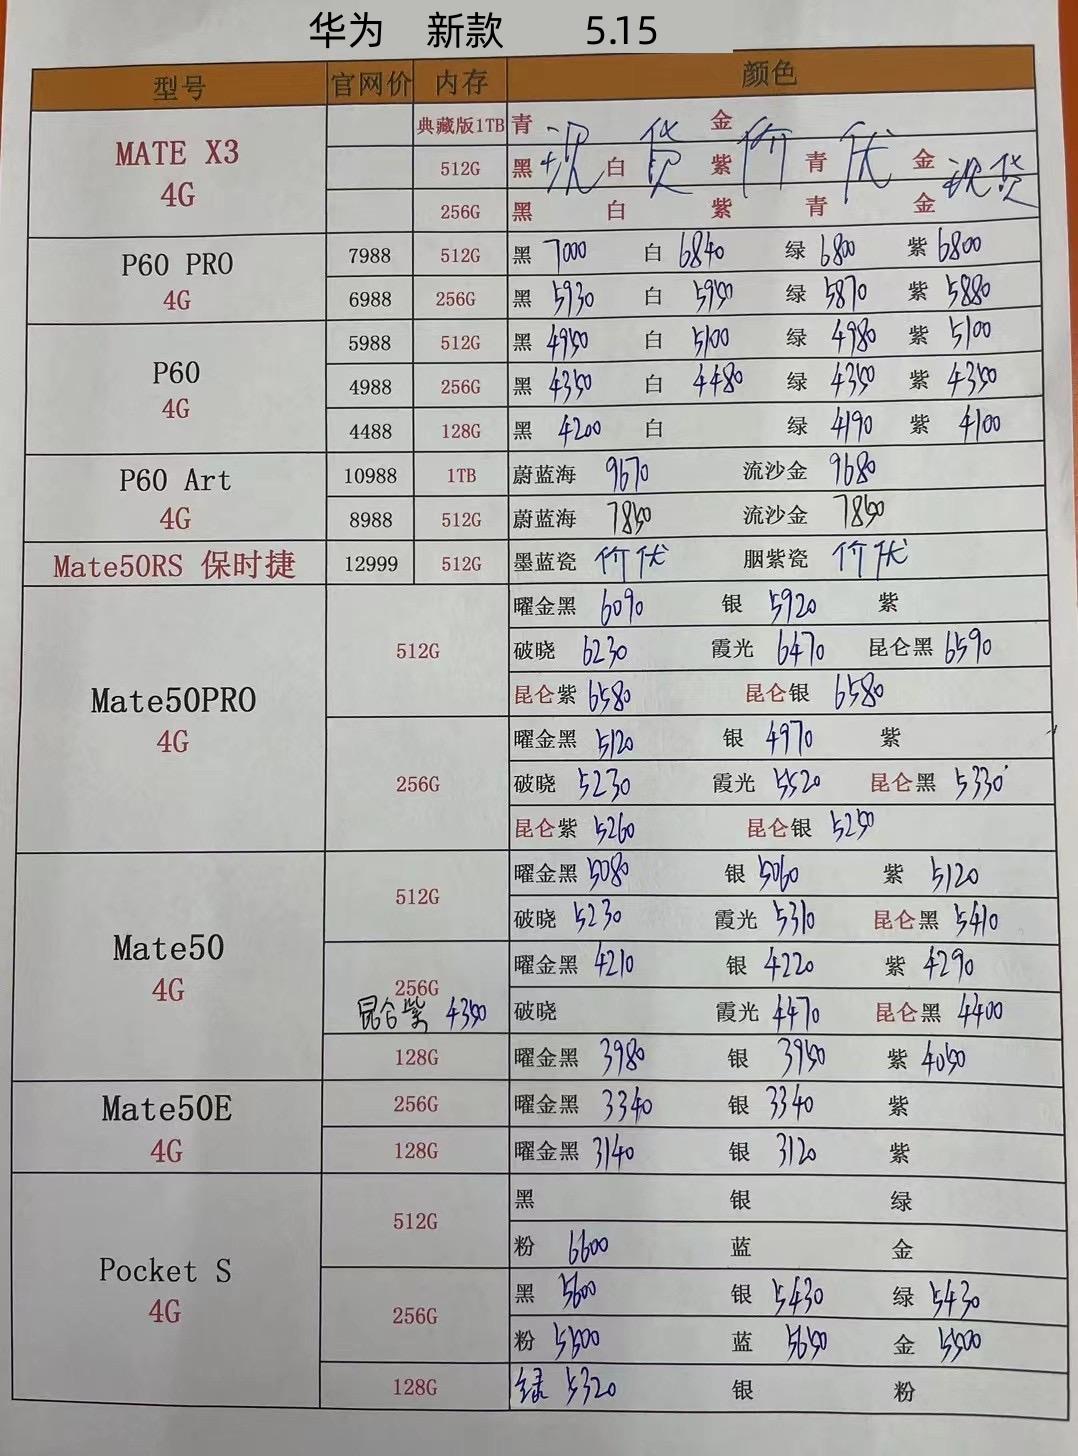 华为 新款 5.15
型号 官网价 内存 颜色
MATE X3 4G
典藏版1TB 青 金
512G 黑 白 紫 青 金
256G 黑 白 紫 青 金
现货 价优 现货
P60 PRO 4G
7988 512G 黑 7000 白 6840 绿 6800 紫 6800
6988 256G 黑 5930 白 5950 绿 5870 紫 5880
P60 4G
5988 512G 黑 4950 白 5100 绿 4980 紫 5100
4988 256G 黑 4350 白 4480 绿 4350 紫 4350
4488 128G 黑 4200 白 绿 4190 紫 4100
P60 Art 4G
10988 1TB 蔚蓝海 9670 流沙金 9680
8988 512G 蔚蓝海 7850 流沙金 7850
Mate50RS 保时捷 12999 512G 墨蓝瓷 价优 胭紫瓷 价优
Mate50PRO 4G
512G 曜金黑 6090 银 5920 紫
破晓 6230 霞光 6470 昆仑黑 6590
昆仑紫 6580 昆仑银 6580
256G 曜金黑 5120 银 4970 紫
破晓 5230 霞光 5520 昆仑黑 5330
昆仑紫 5260 昆仑银 5250
Mate50 4G
512G 曜金黑 5080 银 5060 紫 5120
破晓 5230 霞光 5310 昆仑黑 5410
256G 曜金黑 4210 银 4220 紫 4290
昆仑紫 4350 破晓 霞光 4470 昆仑黑 4400
128G 曜金黑 3980 银 3950 紫 4050
Mate50E 4G
256G 曜金黑 3340 银 3340 紫
128G 曜金黑 3140 银 3120 紫
Pocket S 4G
512G 黑 银 绿
粉 6600 蓝 金
256G 黑 5600 银 5430 绿 5430
粉 5500 蓝 5650 金 5500
128G 绿 5320 银 粉